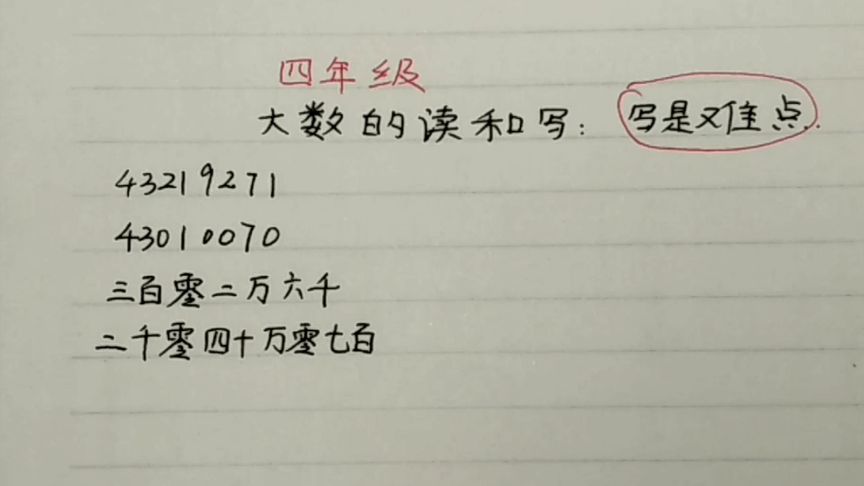 四年级
大数的读和写：写是难点.
43219271
43010070
三百零二万六千
二千零四十万零七百